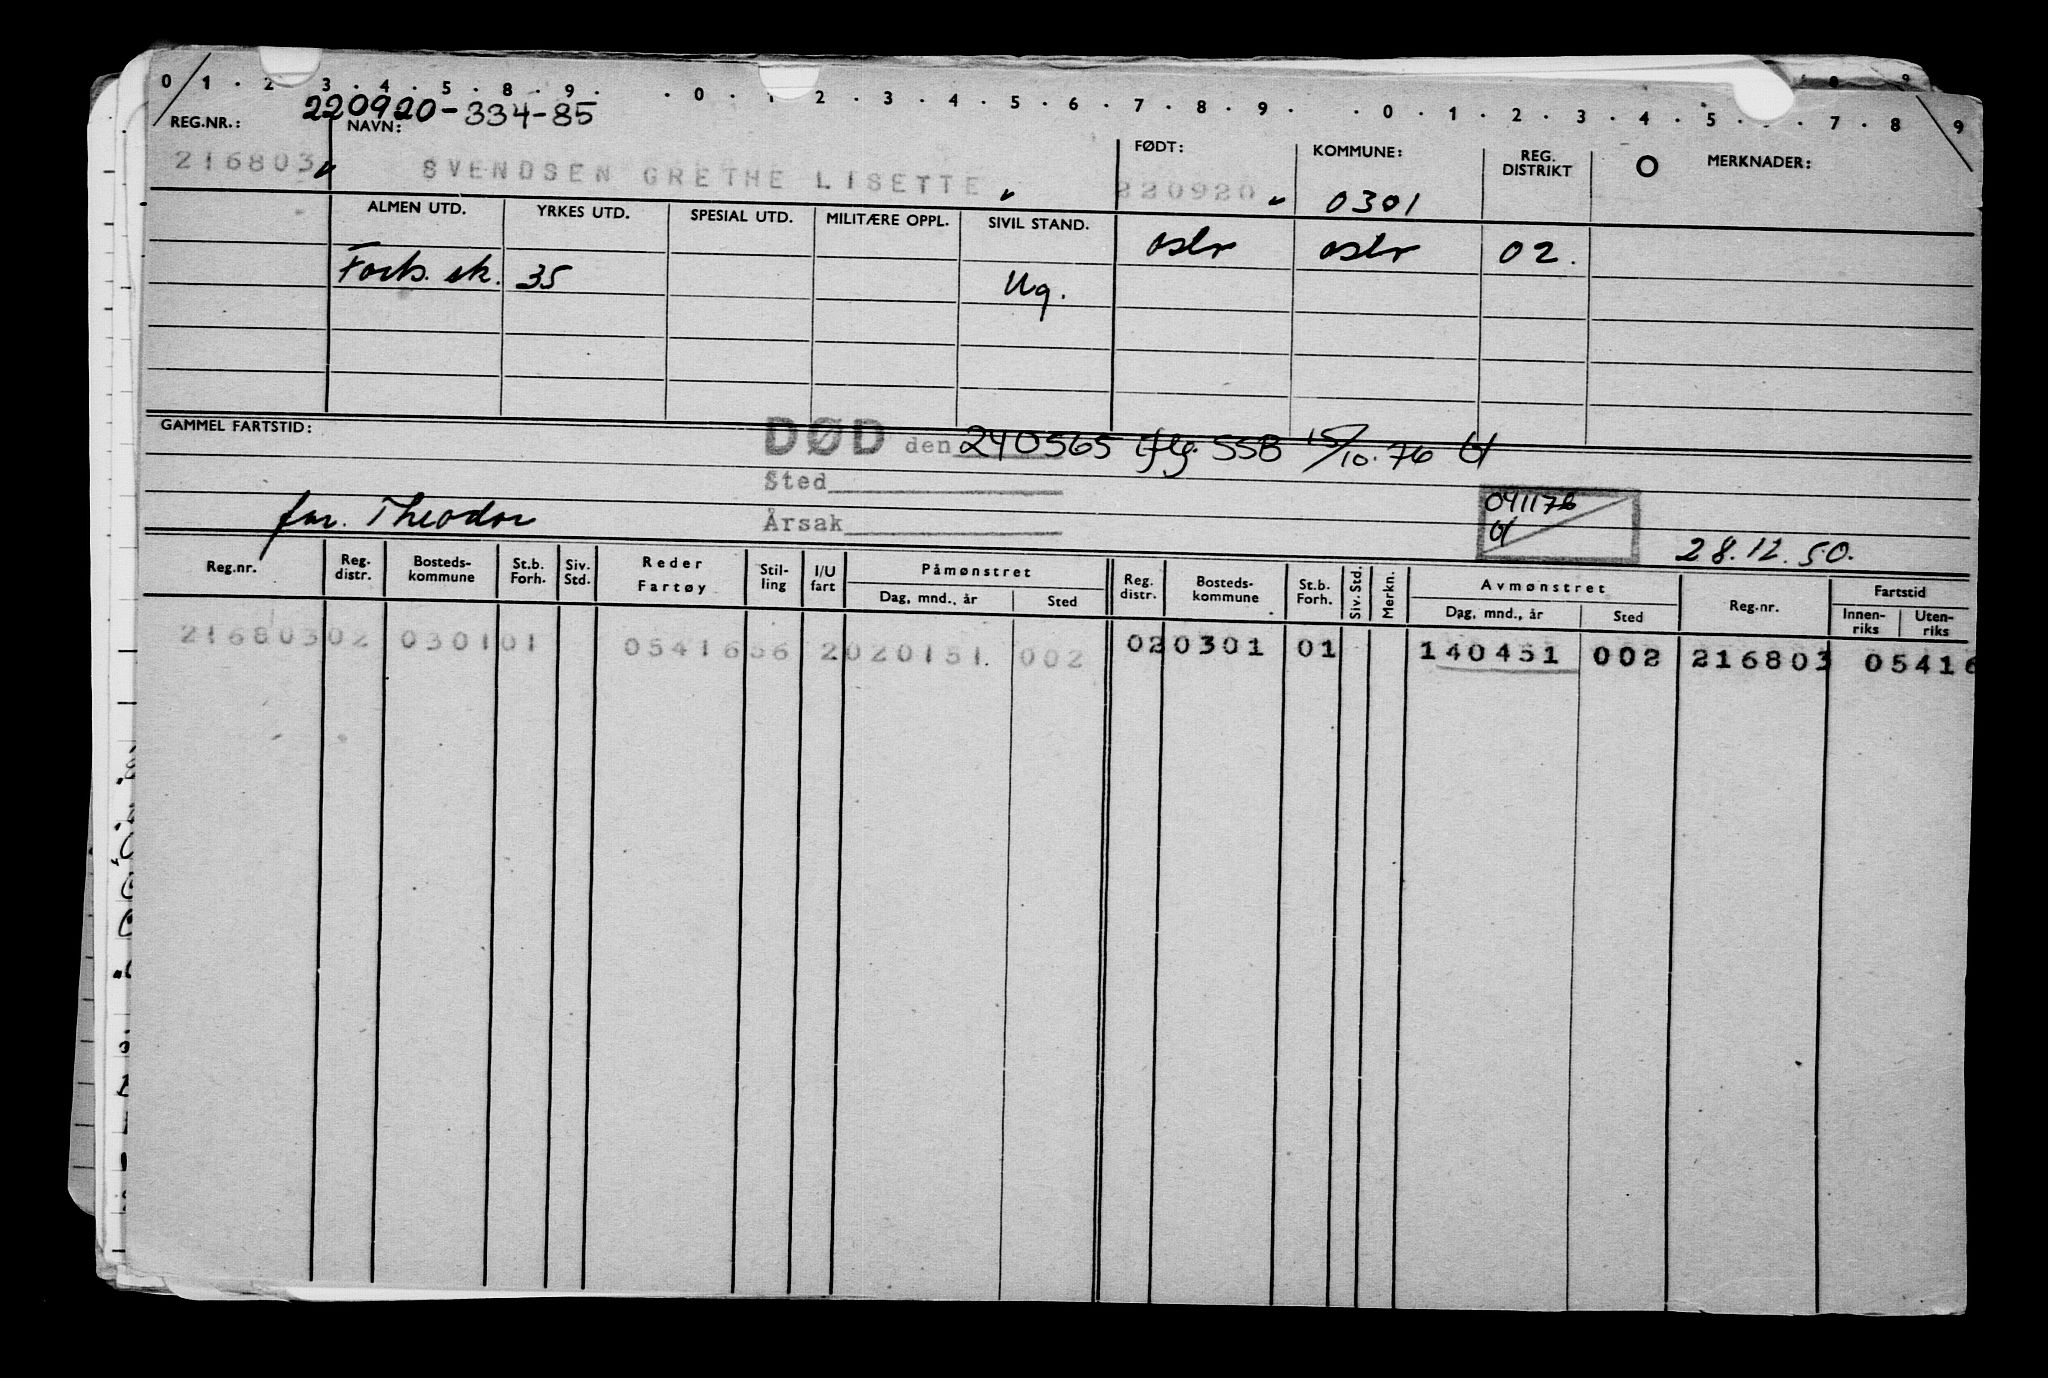 0 . 1 . 2 . 3 . 4 . 5 . 8 . 9 . . 0 . 1 . 2 . 3 . 4 . 5 . 6 . 7 . 8 . 9 . . 0 . 1 . 2 . 3 . 4 . 5 . . 7 . 8 . 9
220920-334-85
REG.NR.: NAVN: FØDT: KOMMUNE: REG. DISTRIKT O MERKNADER:
216803 SVENDSEN GRETHE LISETTE 220920 0301
ALMEN UTD. YRKES UTD. SPESIAL UTD. MILITÆRE OPPL. SIVIL STAND.
Oslo Oslo 02.
Forts. sk. 35 Ug.
GAMMEL FARTSTID:
DØD den 240565 iflg. SSB 15/10.76
Sted
Årsak
far. Theodor
091176
28.12.50.
Reg.nr. Reg. distr. Bosteds- kommune St.b. Forh. Siv. Std. Reder Fartøy Stil- ling I/U fart Påmønstret Dag, mnd., år Sted Reg. distr. Bosteds- kommune St.b. Forh. Siv. Std. Merkn. Avmønstret Dag, mnd., år Sted Reg.nr. Fartstid Innen- riks Uten- riks
216803 02 0301 01 05416 56 2 020151. 002 02 0301 01 140451 002 216803 05416